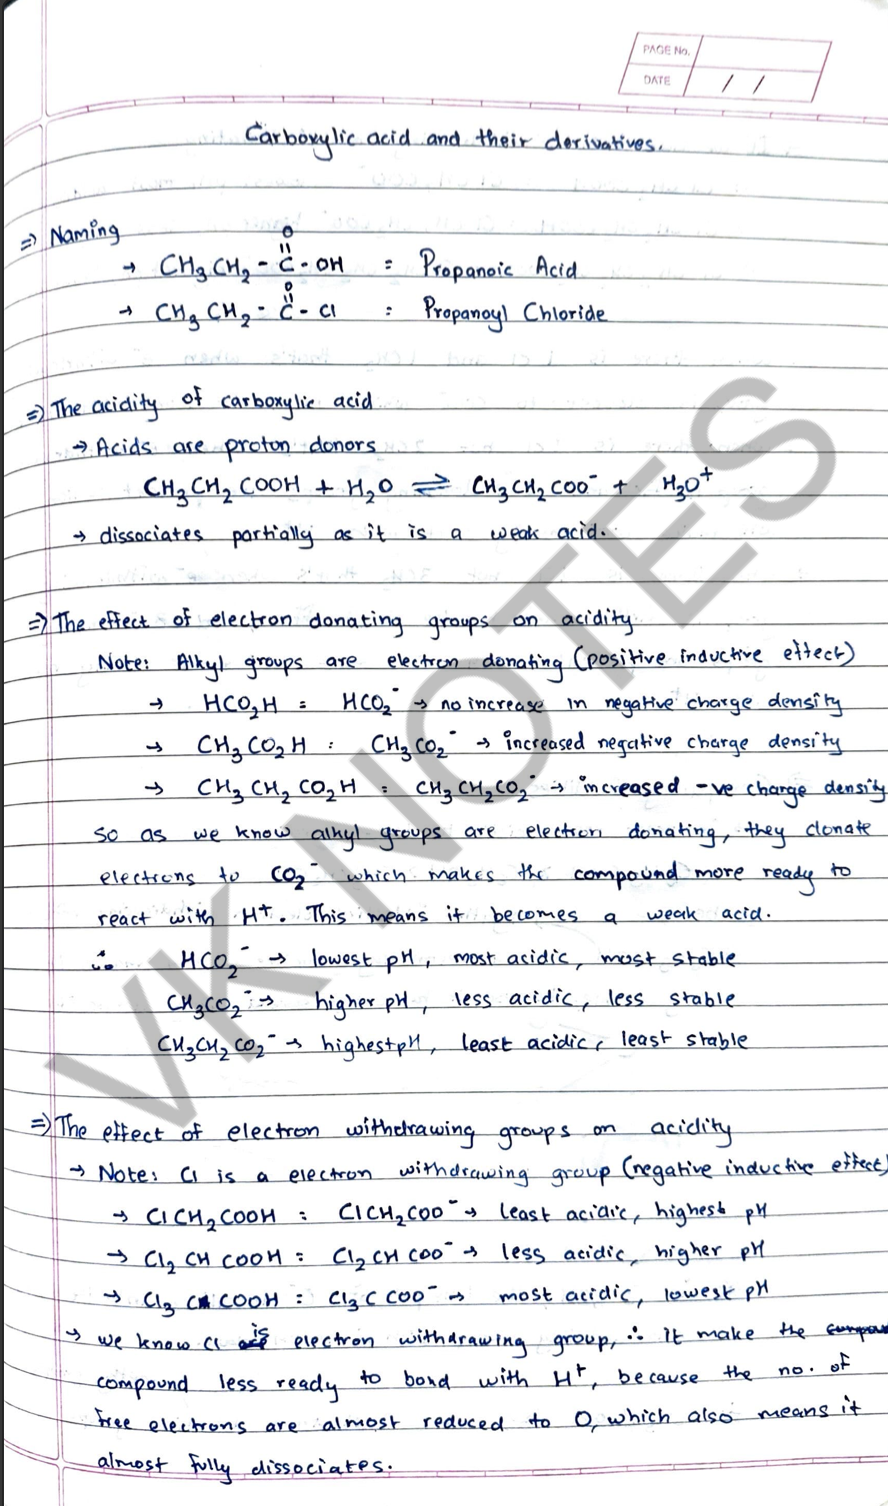 PAGE No.
DATE / /
Carboxylic acid and their derivatives.
⇒ Naming
O
||
→ CH₃CH₂ - C - OH = Propanoic Acid
O
||
→ CH₃CH₂ - C - Cl : Propanoyl Chloride
⇒ The acidity of carboxylic acid
→ Acids are proton donors
CH₃CH₂COOH + H₂O ⇌ CH₃CH₂COO⁻ + H₃O⁺
→ dissociates partially as it is a weak acid.
⇒ The effect of electron donating groups on acidity
Note: Alkyl groups are electron donating (positive inductive effect)
→ HCO₂H = HCO₂⁻ → no increase in negative charge density
→ CH₃CO₂H : CH₃CO₂⁻ → increased negative charge density
→ CH₃CH₂CO₂H : CH₃CH₂CO₂⁻ → increased -ve charge density
so as we know alkyl groups are electron donating, they donate
electrons to CO₂⁻ which makes the compound more ready to
react with H⁺. This means it becomes a weak acid.
∴ HCO₂⁻ → lowest pH, most acidic, most stable
CH₃CO₂⁻ → higher pH, less acidic, less stable
CH₃CH₂CO₂⁻ → highest pH, least acidic, least stable
⇒ The effect of electron withdrawing groups on acidity
→ Note: Cl is a electron withdrawing group (negative inductive effect)
→ ClCH₂COOH : ClCH₂COO⁻ → least acidic, highest pH
→ Cl₂CHCOOH : Cl₂CHCOO⁻ → less acidic, higher pH
→ Cl₃CCOOH : Cl₃CCOO⁻ → most acidic, lowest pH
→ we know Cl is electron withdrawing group, ∴ it make the
compound less ready to bond with H⁺, because the no. of
free electrons are almost reduced to 0, which also means it
almost fully dissociates.
VK NOTES